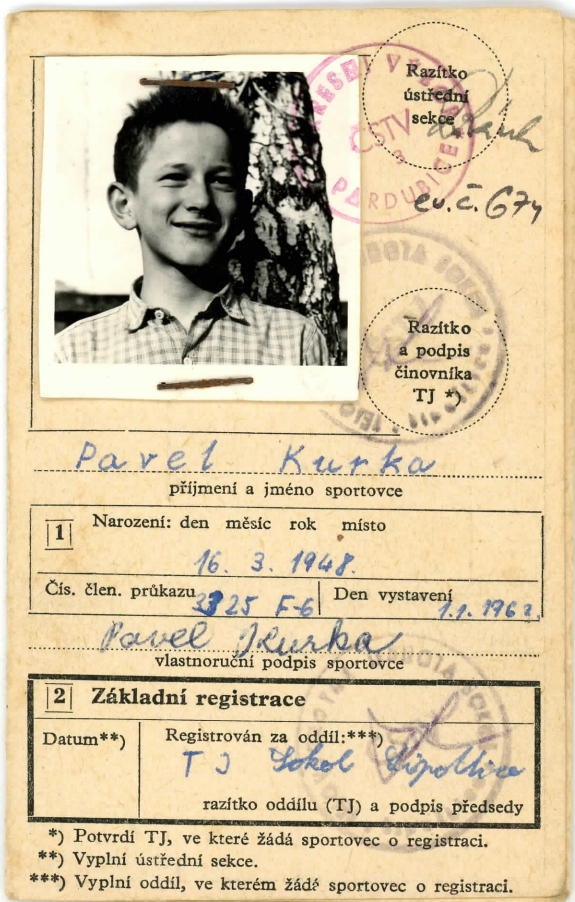 Razítko
ústřední
sekce
ČSTV
PARDUBICE
ev. č. 674
Razítko
a podpis
činovníka
TJ *)
Pavel Kurka
příjmení a jméno sportovce
1 Narození: den měsíc rok místo
16. 3. 1948.
Čís. člen. průkazu 3325 F-6 Den vystavení 1.1.1962
Pavel Kurka
vlastnoruční podpis sportovce
2 Základní registrace
Datum**) Registrován za oddíl:***)
TJ Sokol Lipoltice
razítko oddílu (TJ) a podpis předsedy
*) Potvrdí TJ, ve které žádá sportovec o registraci.
**) Vyplní ústřední sekce.
***) Vyplní oddíl, ve kterém žádá sportovec o registraci.